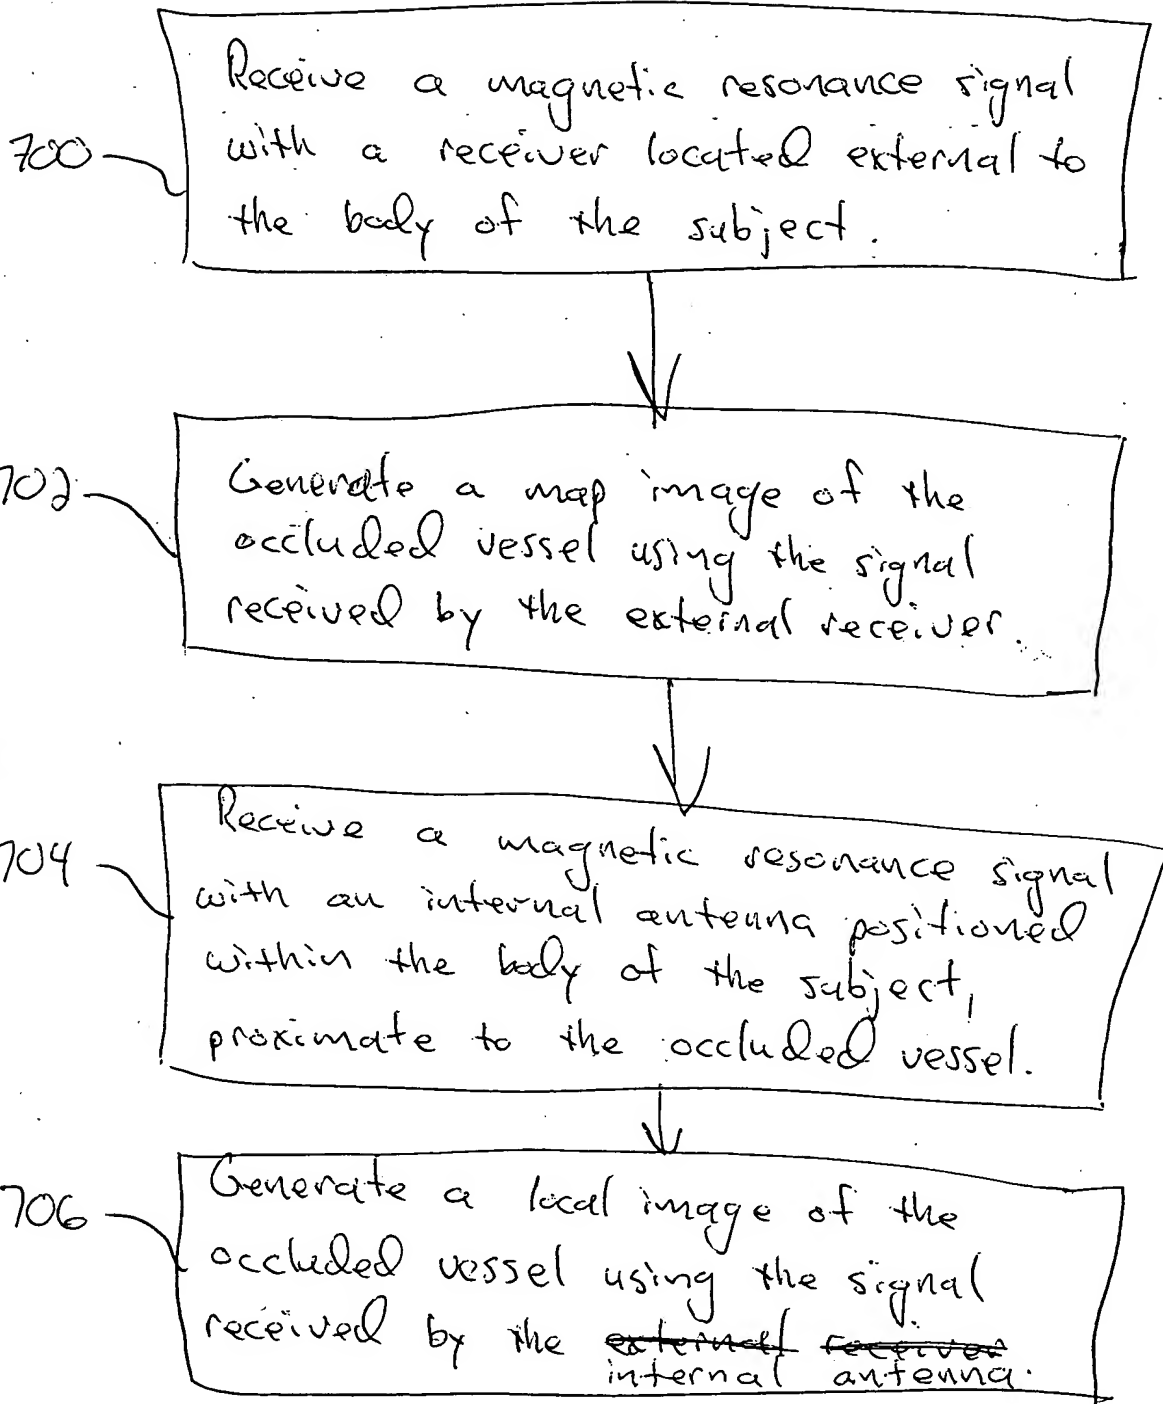 Receive a magnetic resonance signal
700 with a receiver located external to
the body of the subject.
702 Generate a map image of the
occluded vessel using the signal
received by the external receiver.
Receive a magnetic resonance signal
704 with an internal antenna positioned
within the body of the subject,
proximate to the occluded vessel.
706 Generate a local image of the
occluded vessel using the signal
received by the external receiver
internal antenna.